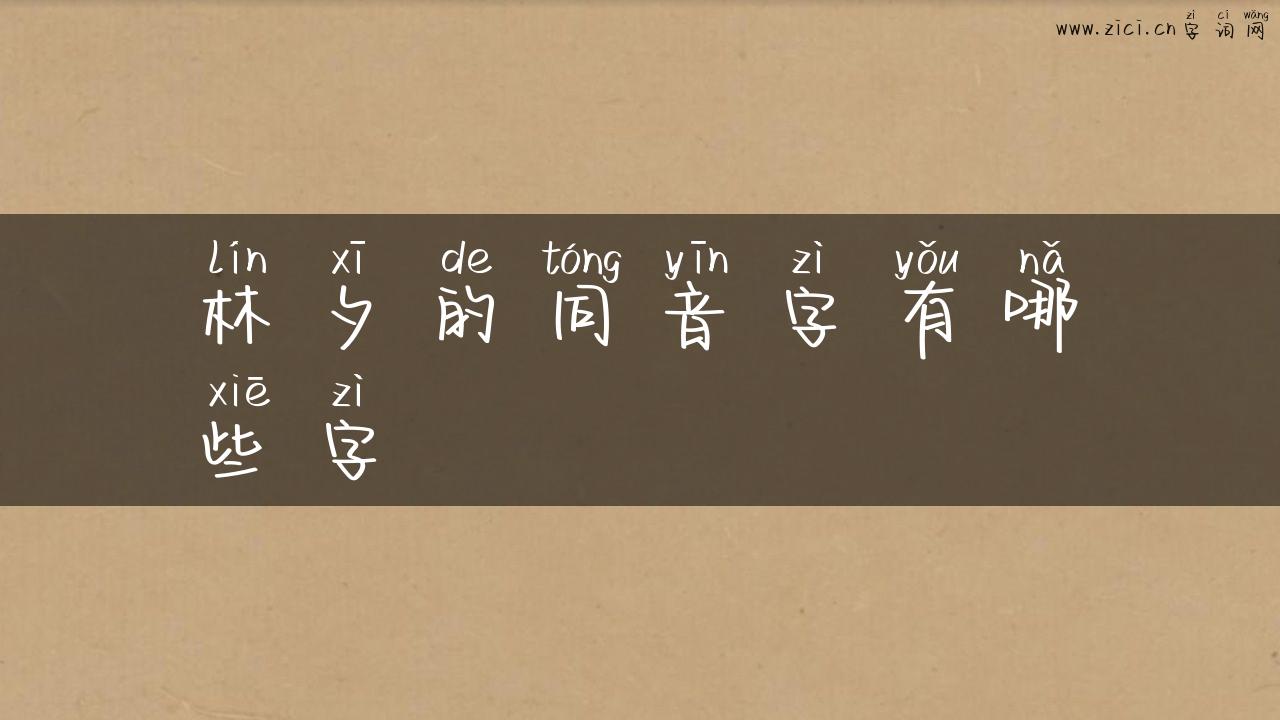 zì cí wǎng
www.zici.cn 字词网
lín xī de tóng yīn zì yǒu nǎ
林夕的同音字有哪
xiē zì
些字